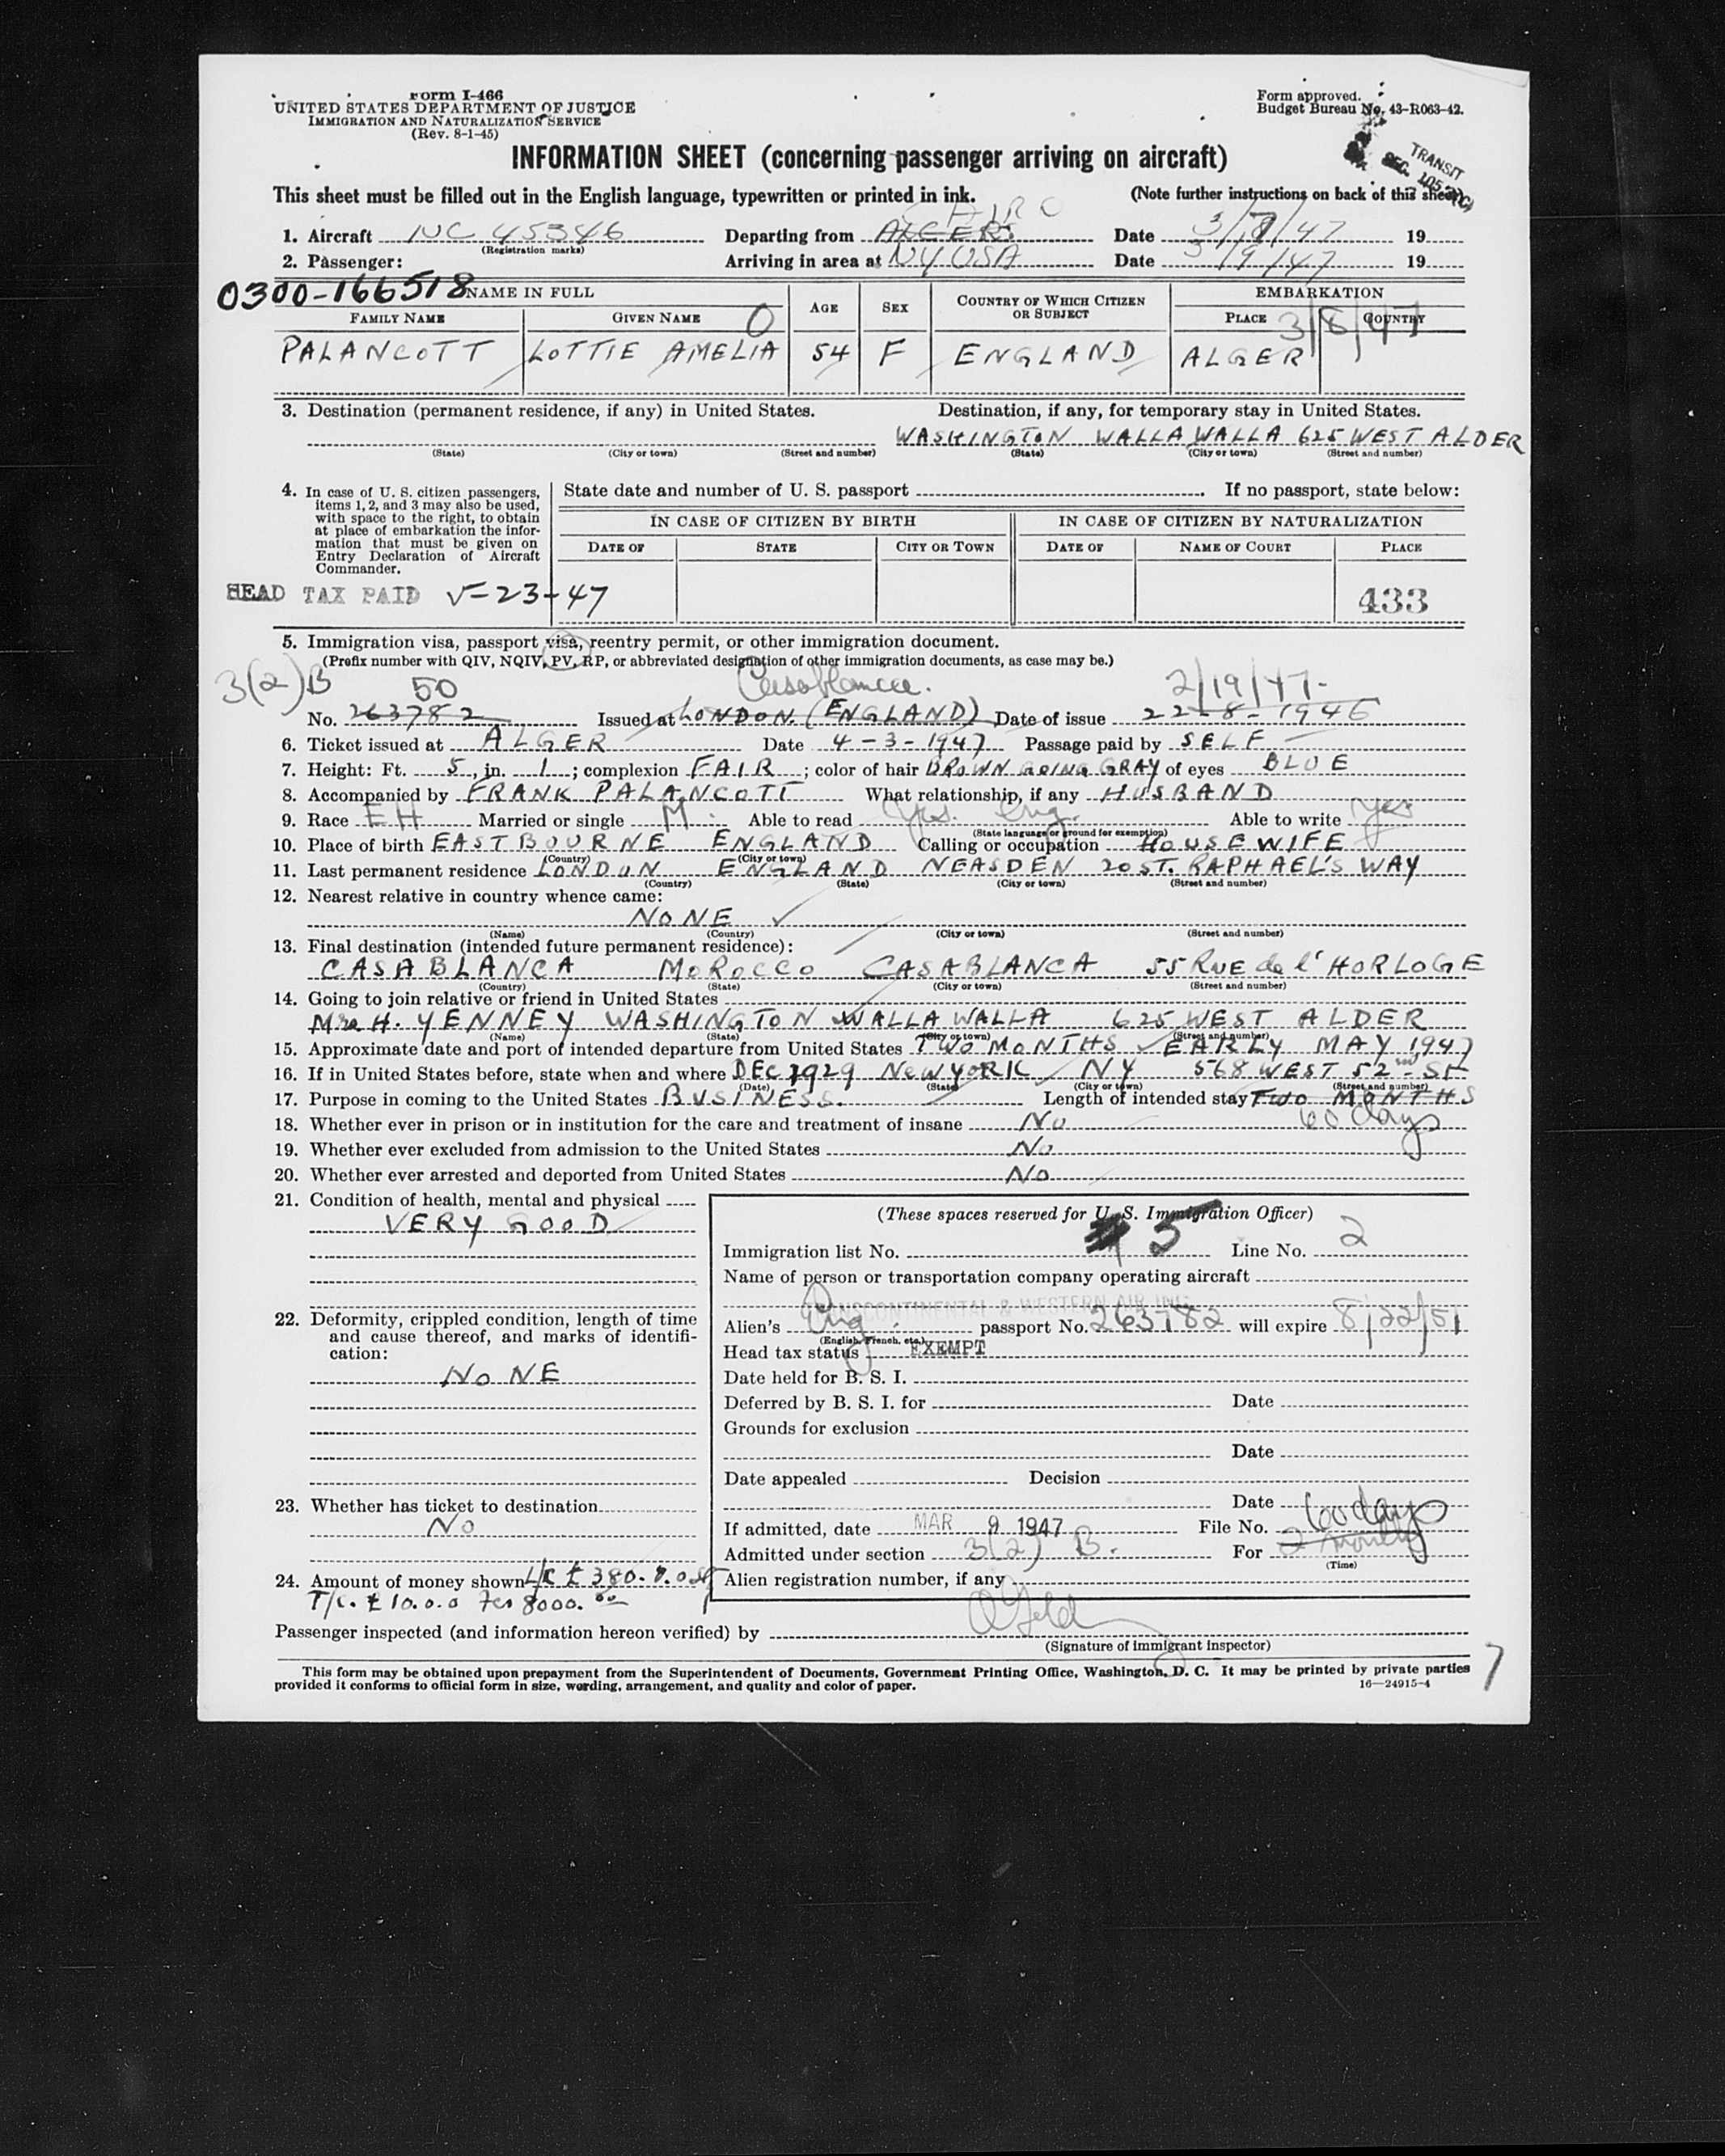 Form I-466
UNITED STATES DEPARTMENT OF JUSTICE
IMMIGRATION AND NATURALIZATION SERVICE
(Rev. 8-1-45)
Form approved.
Budget Bureau No. 43-R063-42.
INFORMATION SHEET (concerning passenger arriving on aircraft)
TRANSIT
SEC.
This sheet must be filled out in the English language, typewritten or printed in ink. (Note further instructions on back of this sheet)
CAIRO
1. Aircraft NC 45346 Departing from ALGER Date 3/8/47 19
(Registration marks)
2. Passenger: Arriving in area at NY USA Date 3/9/47 19
0300-166518 NAME IN FULL AGE SEX COUNTRY OF WHICH CITIZEN OR SUBJECT EMBARKATION
FAMILY NAME GIVEN NAME PLACE COUNTRY
0 3/8/47
PALANCOTT LOTTIE AMELIA 54 F ENGLAND ALGER
3. Destination (permanent residence, if any) in United States. Destination, if any, for temporary stay in United States.
WASHINGTON WALLA WALLA 625 WEST ALDER
(State) (City or town) (Street and number) (State) (City or town) (Street and number)
4. In case of U. S. citizen passengers, items 1, 2, and 3 may also be used, with space to the right, to obtain at place of embarkation the information that must be given on Entry Declaration of Aircraft Commander.
State date and number of U. S. passport If no passport, state below:
IN CASE OF CITIZEN BY BIRTH IN CASE OF CITIZEN BY NATURALIZATION
DATE OF STATE CITY OR TOWN DATE OF NAME OF COURT PLACE
HEAD TAX PAID V-23-47 433
5. Immigration visa, passport visa, reentry permit, or other immigration document.
(Prefix number with QIV, NQIV, PV, RP, or abbreviated designation of other immigration documents, as case may be.)
3(2)B 50 Casablanca. 2/19/47-
No. 263782 Issued at LONDON. (ENGLAND) Date of issue 22-8-1946
6. Ticket issued at ALGER Date 4-3-1947 Passage paid by SELF
7. Height: Ft. 5, in. 1; complexion FAIR; color of hair BROWN GOING GRAY of eyes BLUE
8. Accompanied by FRANK PALANCOTT What relationship, if any HUSBAND
9. Race EH Married or single M. Able to read Yes. Eng. Able to write Yes
(State language or ground for exemption)
10. Place of birth EASTBOURNE ENGLAND Calling or occupation HOUSEWIFE
(Country) (City or town)
11. Last permanent residence LONDON ENGLAND NEASDEN 20 ST. RAPHAEL'S WAY
(Country) (State) (City or town) (Street and number)
12. Nearest relative in country whence came:
NONE ✓
(Name) (Country) (City or town) (Street and number)
13. Final destination (intended future permanent residence):
CASABLANCA MOROCCO CASABLANCA 55 RUE de l'HORLOGE
(Country) (State) (City or town) (Street and number)
14. Going to join relative or friend in United States
Mrs H. YENNEY WASHINGTON WALLA WALLA 625 WEST ALDER
(Name) (State) (City or town) (Street and number)
15. Approximate date and port of intended departure from United States TWO MONTHS EARLY MAY 1947
16. If in United States before, state when and where DEC 1929 NEW YORK NY 568 WEST 52nd St
(Date) (State) (City or town) (Street and number)
17. Purpose in coming to the United States BUSINESS. Length of intended stay TWO MONTHS
60 days
18. Whether ever in prison or in institution for the care and treatment of insane No
19. Whether ever excluded from admission to the United States No
20. Whether ever arrested and deported from United States No
21. Condition of health, mental and physical
VERY GOOD
22. Deformity, crippled condition, length of time and cause thereof, and marks of identification:
NONE
23. Whether has ticket to destination
No
24. Amount of money shown L/C £380.0.0
T/C. £10.0.0 Fcs 8000.00
(These spaces reserved for U. S. Immigration Officer)
Immigration list No. 5 Line No. 2
Name of person or transportation company operating aircraft
TRANSCONTINENTAL & WESTERN AIR INC.
Alien's Eng. passport No. 263782 will expire 8/22/51
(English, French, etc.)
Head tax status EXEMPT
Date held for B. S. I.
Deferred by B. S. I. for Date
Grounds for exclusion
Date
Date appealed Decision
Date
If admitted, date MAR 9 1947 File No. 60 days
Admitted under section 3(2) B. For 2 months
(Time)
Alien registration number, if any
Passenger inspected (and information hereon verified) by
(Signature of immigrant inspector)
This form may be obtained upon prepayment from the Superintendent of Documents, Government Printing Office, Washington, D. C. It may be printed by private parties
provided it conforms to official form in size, wording, arrangement, and quality and color of paper. 16—24915-4
7